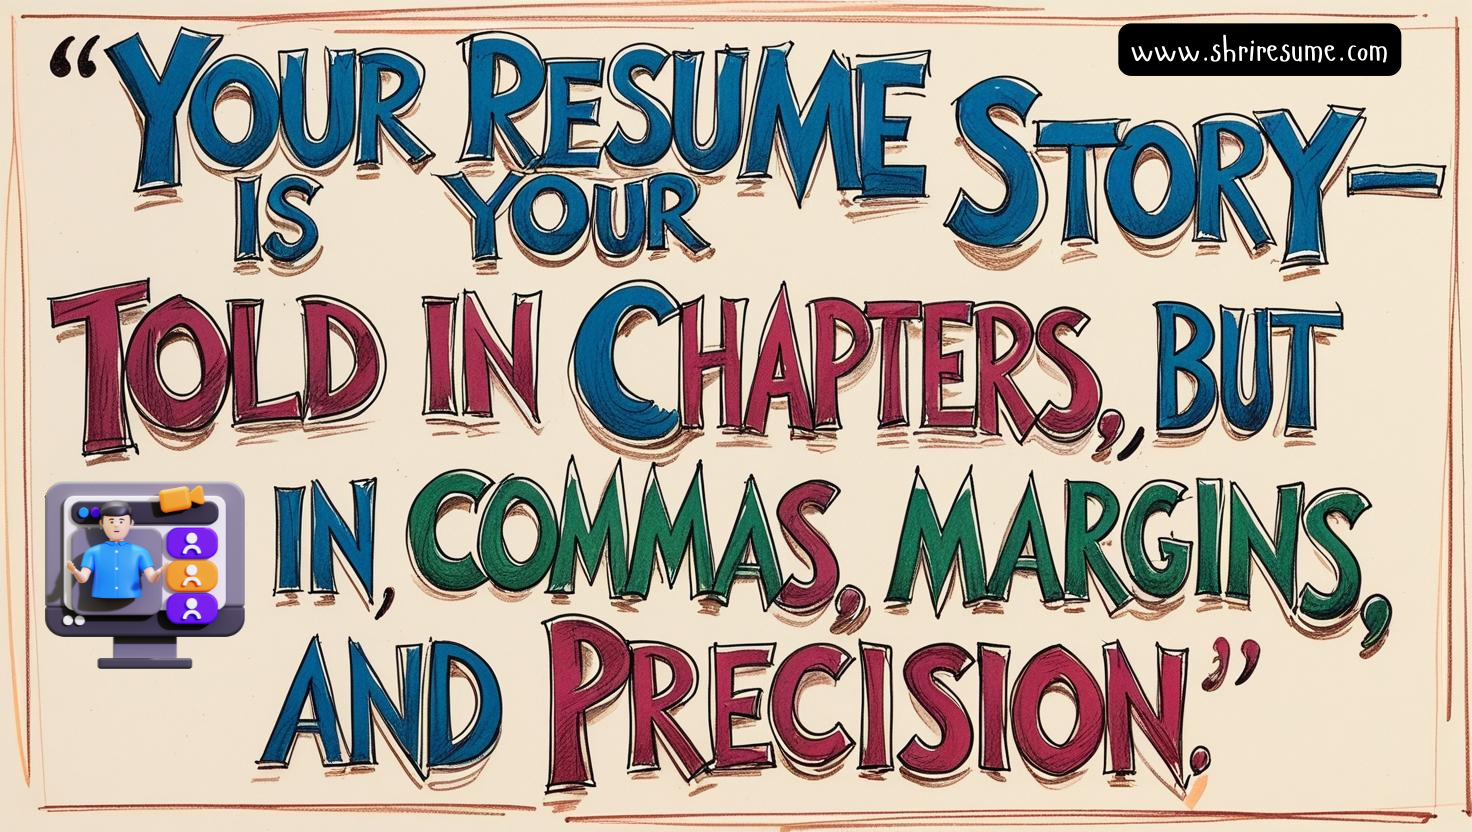 www.shriresume.com
“YOUR RESUME STORY—
IS YOUR
TOLD IN CHAPTERS,, BUT
IN, COMMAS, MARGINS,
AND PRECISION.”